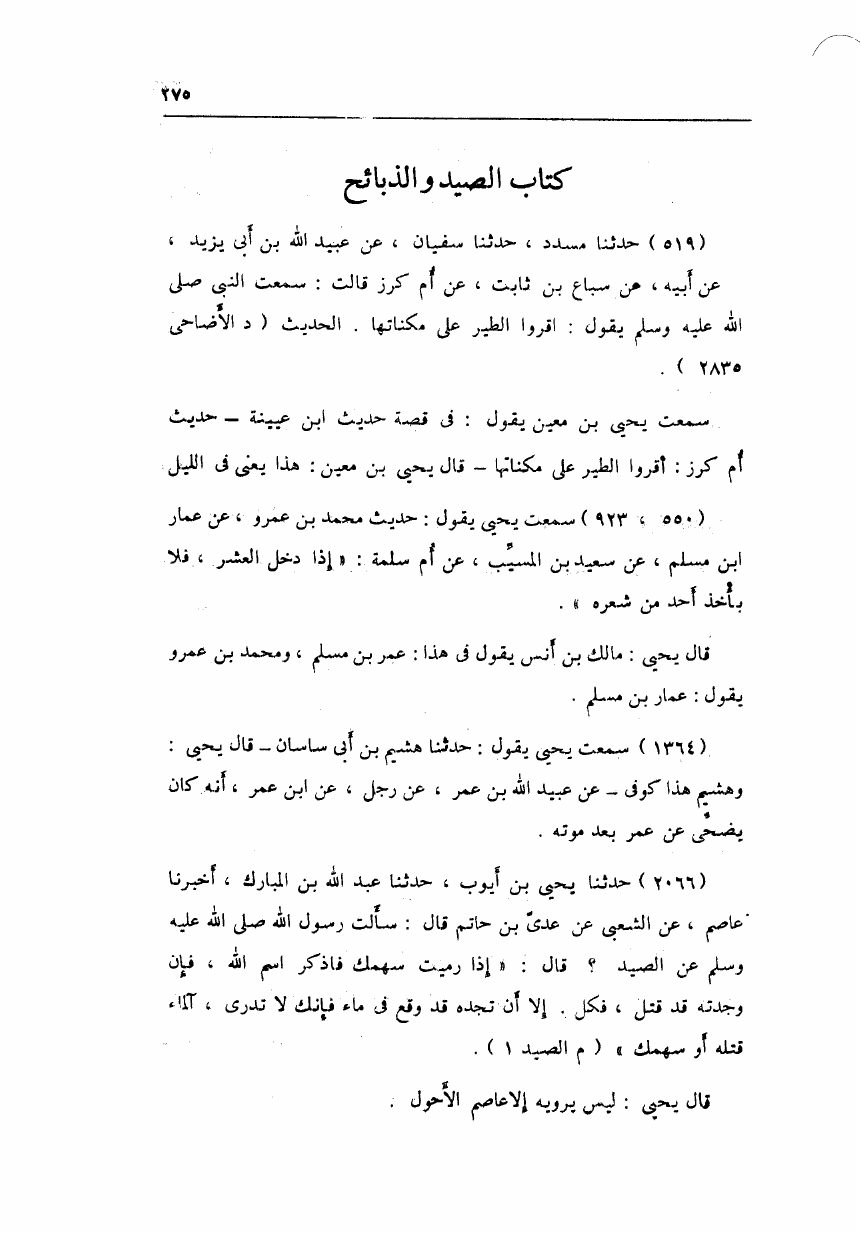 ٢٧٥
كتاب الصيد والذبائح
( ٥١٩ ) حدثنا مسدد ، حدثنا سفيان ، عن عبيد الله بن أبى يزيد ،
عن أبيه ، عن سباع بن ثابت ، عن أم كرز قالت : سمعت النبى صلى
الله عليه وسلم يقول : اقروا الطير على مكناتها . الحديث ( د الأضاحى
٢٨٣٥ ) .
سمعت يحيى بن معين يقول : فى قصة حديث ابن عيينة – حديث
أم كرز : أقروا الطير على مكناتها – قال يحيى بن معين : هذا يعنى فى الليل
( ٥٥٠ ، ٩٢٣ ) سمعت يحيى يقول : حديث محمد بن عمرو ، عن عمار
ابن مسلم ، عن سعيد بن المسيّب ، عن أم سلمة : « إذا دخل العشر ، فلا
يأخذ أحد من شعره » .
قال يحيى : مالك بن أنس يقول فى هذا : عمر بن مسلم ، ومحمد بن عمرو
يقول : عمار بن مسلم .
( ١٣٦٤ ) سمعت يحيى يقول : حدثنا هشيم بن أبى ساسان – قال يحيى :
وهشيم هذا كوفى – عن عبيد الله بن عمر ، عن رجل ، عن ابن عمر ، أنه كان
يضحّى عن عمر بعد موته .
( ٢٠٦٦ ) حدثنا يحيى بن أيوب ، حدثنا عبد الله بن المبارك ، أخبرنا
عاصم ، عن الشعبى عن عدىّ بن حاتم قال : سألت رسول الله صلى الله عليه
وسلم عن الصيد ؟ قال : « إذا رميت سهمك فاذكر اسم الله ، فإن
وجدته قد قتل ، فكل . إلا أن تجده قد وقع فى ماء فإنك لا تدرى ، آلماء
قتله أو سهمك » ( م الصيد ١ ) .
قال يحيى : ليس يرويه إلا عاصم الأحول .